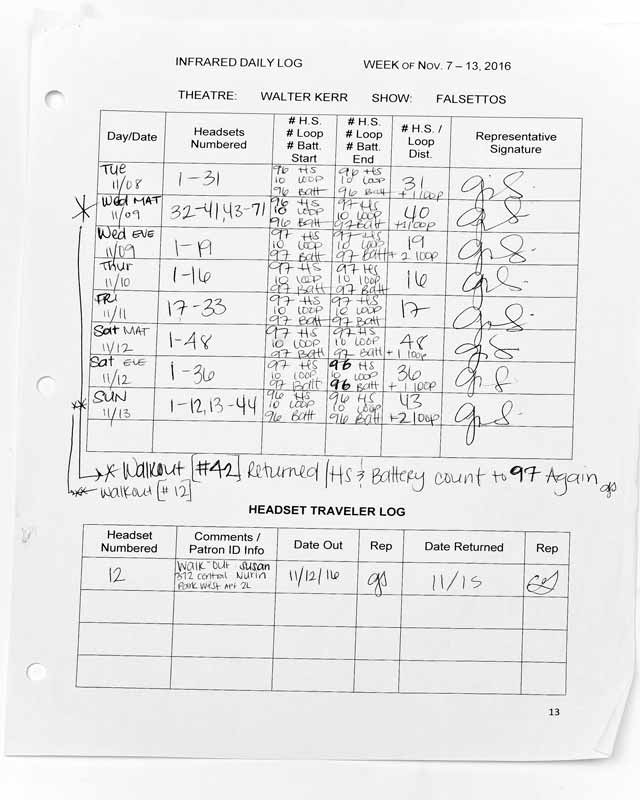 INFRARED DAILY LOG WEEK OF NOV. 7 – 13, 2016
THEATRE: WALTER KERR SHOW: FALSETTOS
Day/Date Headsets Numbered # H.S. # Loop # Batt. Start # H.S. # Loop # Batt. End # H.S. / Loop Dist. Representative Signature
Tue 11/08 1-31 96 HS 10 LOOP 96 Batt 96 HS 10 LOOP 96 Batt 31 + 1 loop
* Wed MAT 11/09 32-41,43-71 96 HS 10 LOOP 96 Batt 97 HS 10 LOOP 97 Batt 40 +1 loop
Wed EVE 11/09 1-19 97 HS 10 LOOP 97 Batt 97 HS 10 LOOP 97 Batt 19 + 2 loop
Thur 11/10 1-16 97 HS 10 LOOP 97 Batt 97 HS 10 LOOP 97 Batt 16
FRI 11/11 17-33 97 HS 10 LOOP 97 Batt 97 HS 10 LOOP 97 Batt 17
Sat MAT 11/12 1-48 97 HS 10 LOOP 97 Batt 97 HS 10 LOOP 97 Batt 48 + 1 loop
Sat EVE 11/12 1-36 97 HS 10 LOOP 97 Batt 96 HS 10 LOOP 96 Batt 36 + 1 loop
** SUN 11/13 1-12,13-44 96 HS 10 LOOP 96 Batt 96 HS 10 LOOP 96 Batt 43 +2 loop
* Walkout [#42] Returned / HS & Battery count to 97 Again gs
** Walkout [#12]
HEADSET TRAVELER LOG
Headset Numbered Comments / Patron ID Info Date Out Rep Date Returned Rep
12 Walk-out Susan Nurin 372 Central Park West Apt 2L 11/12/16 gs 11/15 gs
13